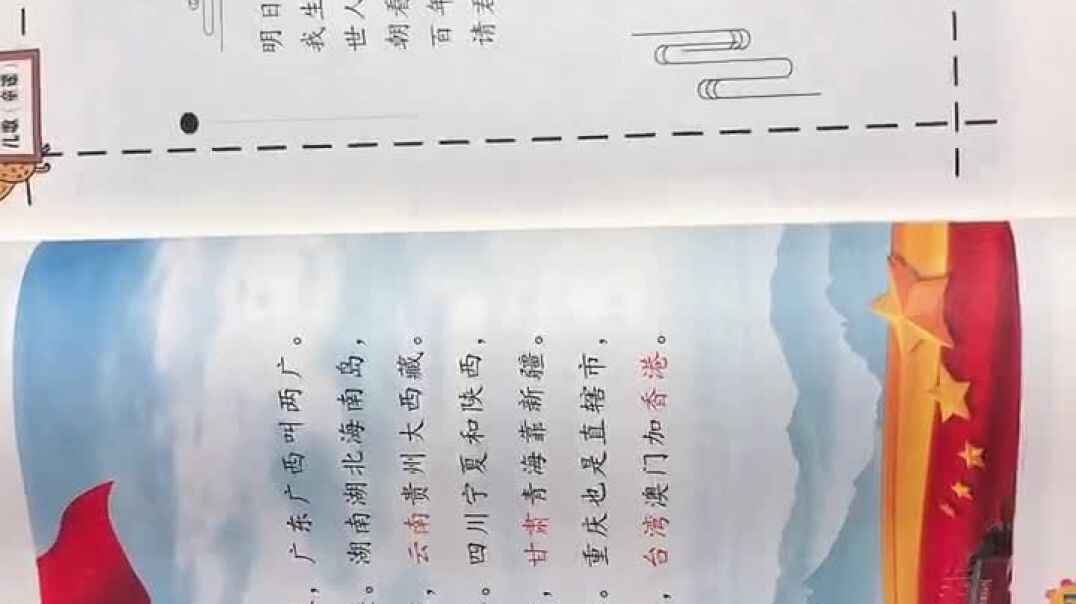 ，广东广西叫两广。
。湖南湖北海南岛，
，云南贵州大西藏。
。四川宁夏和陕西，
，甘肃青海靠新疆。
。重庆也是直辖市，
，台湾澳门加香港。
儿歌（童谣）
明日
我生
世人
朝看
百年
请君